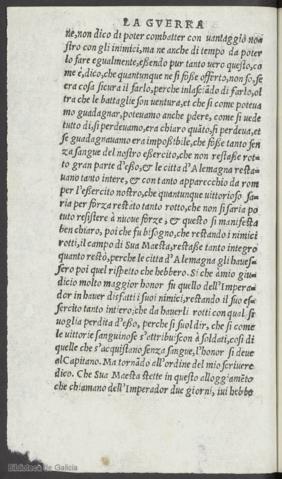 LA GVERRA
ne, non dico di poter combatter con uantaggio no-
stro con gli inimici, ma ne anche di tempo da poter
lo fare egualmente, essendo pur tanto uero questo, co
me è, dico, che quantunque ne si fosse offerto, non so, se
era cosa sicura il farlo, perche inlasciādo di farlo, ol
tra che le battaglie son uentura, et che si come poteua
mo guadagnar, poteuamo anche pdere, come si uede
tutto di, si perdeuamo, era chiaro quāto, si perdeua, et
se guadagnauamo era impossibile, che fosse tanto sen
za sangue del nostro essercito, che non restasse rot-
to gran parte d'esso, & le citta d'Alemagna resta-
uano tanto intere, & con tanto apparecchio da rom
per l'essercito nostro, che quantunque uittorioso sa-
ria per forza restato tanto rotto, che non si saria po
tuto resistere à nuoue forze, & questo si manifesta
ben chiaro, poi che fu bisogno, che restando i nimici
rotti, il campo di Sua Maesta, restasse tanto integro
quanto restò, perche le citta d'Alemagna gli hauess-
sero poi quel rispetto che hebbero. Si che à mio giu-
dicio molto maggior honor fu quello dell'Impera-
dor in hauer disfatti i suoi nimici, restando il suo es-
sercito tanto intero, che da hauerli rotti con qual si
uoglia perdita d'esso, perche si suol dir, che si come
le uittorie sanguinose s'attribuiscon à soldati, cosi di
quelle che s'acquistano senza sangue, l'honor si deue
al Capitano. Ma tornādo all'ordine del mio scriuere
dico. Che Sua Maesta stette in questo alloggiamēto
che chiamano dell'Imperador due giorni, iui hebbe
Biblioteca de Galicia